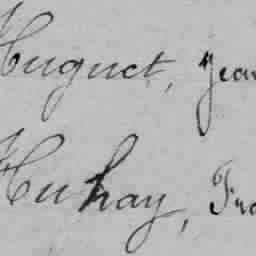 Huguet, Jean
Huhay, Fra